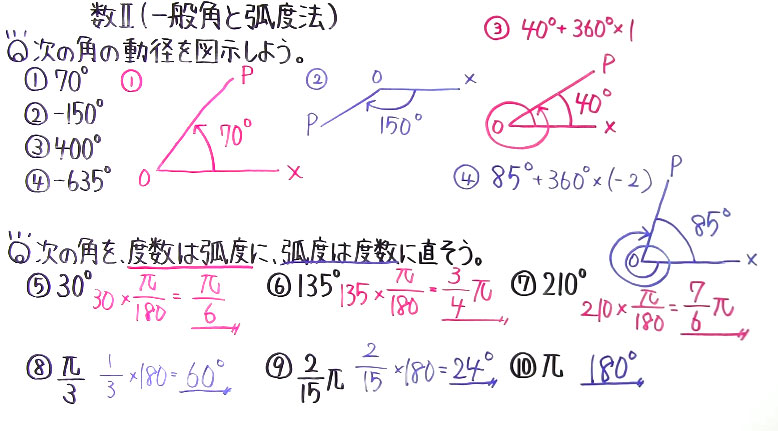 数Ⅱ(一般角と弧度法)
次の角の動径を図示しよう。
① 70°
② -150°
③ 400°
④ -635°
① P 70° O X
② O X P 150°
③ 40°+360°×1
P 40° O X
④ 85°+360°×(-2)
P 85° O X
次の角を、度数は弧度に、弧度は度数に直そう。
⑤ 30° 30×π/180=π/6
⑥ 135° 135×π/180=3/4π
⑦ 210° 210×π/180=7/6π
⑧ π/3 1/3×180=60°
⑨ 2/15π 2/15×180=24°
⑩ π 180°